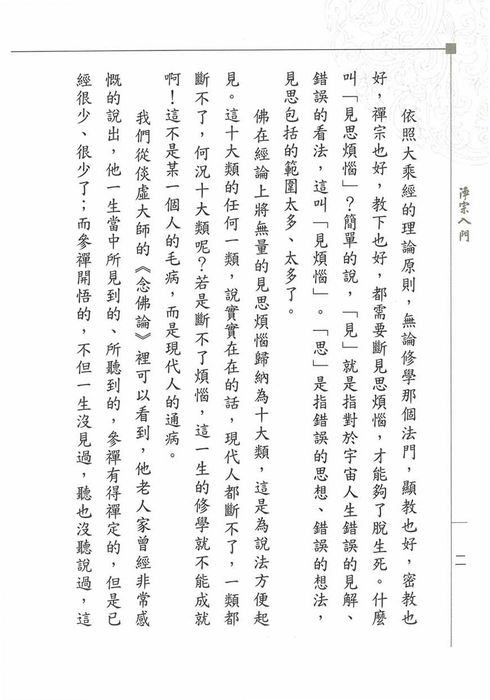 淨宗入門
二
依照大乘經的理論原則，無論修學那個法門，顯教也好，密教也
好，禪宗也好，教下也好，都需要斷見思煩惱，才能夠了脫生死。什麼
叫「見思煩惱」？簡單的說，「見」就是指對於宇宙人生錯誤的見解、
錯誤的看法，這叫「見煩惱」。「思」是指錯誤的思想、錯誤的想法，
見思包括的範圍太多、太多了。
佛在經論上將無量的見思煩惱歸納為十大類，這是為說法方便起
見。這十大類的任何一類，說實實在在的話，現代人都斷不了，一類都
斷不了，何況十大類呢？若是斷不了煩惱，這一生的修學就不能成就
啊！這不是某一個人的毛病，而是現代人的通病。
我們從倓虛大師的《念佛論》裡可以看到，他老人家曾經非常感
慨的說出，他一生當中所見到的、所聽到的，參禪有得禪定的，但是已
經很少、很少了；而參禪開悟的，不但一生沒見過，聽也沒聽說過，這